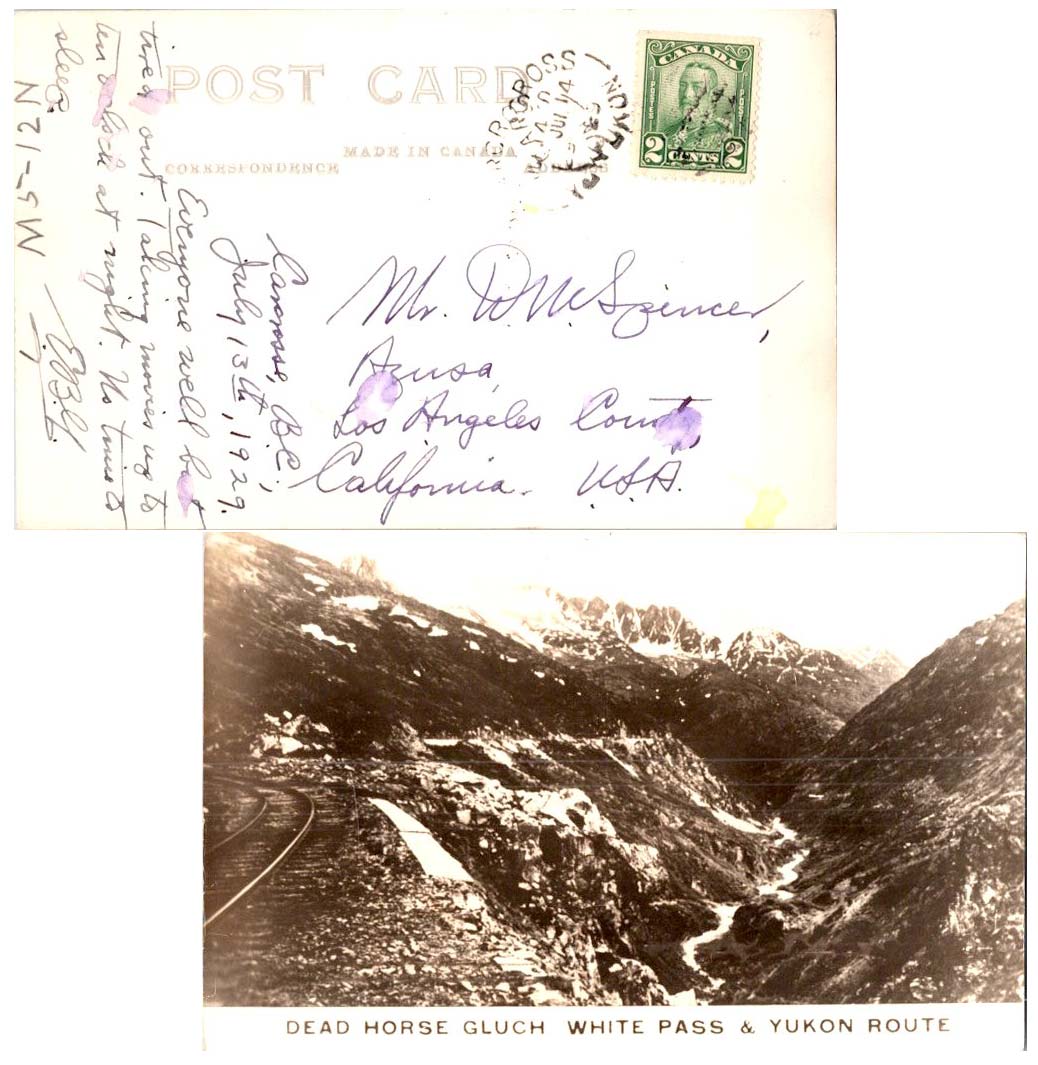 POST CARD
MADE IN CANADA
CORRESPONDENCE
CARCROSS
JUL 14
CANADA
POSTES
POSTAGE
2 CENTS 2
Carcross, B.C.,
July 13th, 1929.
Everyone well but
tired out. Taking movies up to
ten o'clock at night. No time to
sleep.
E.B.H.
M5-12N
Mr. D M Spencer,
Azusa,
Los Angeles County,
California. USA.
DEAD HORSE GLUCH WHITE PASS & YUKON ROUTE